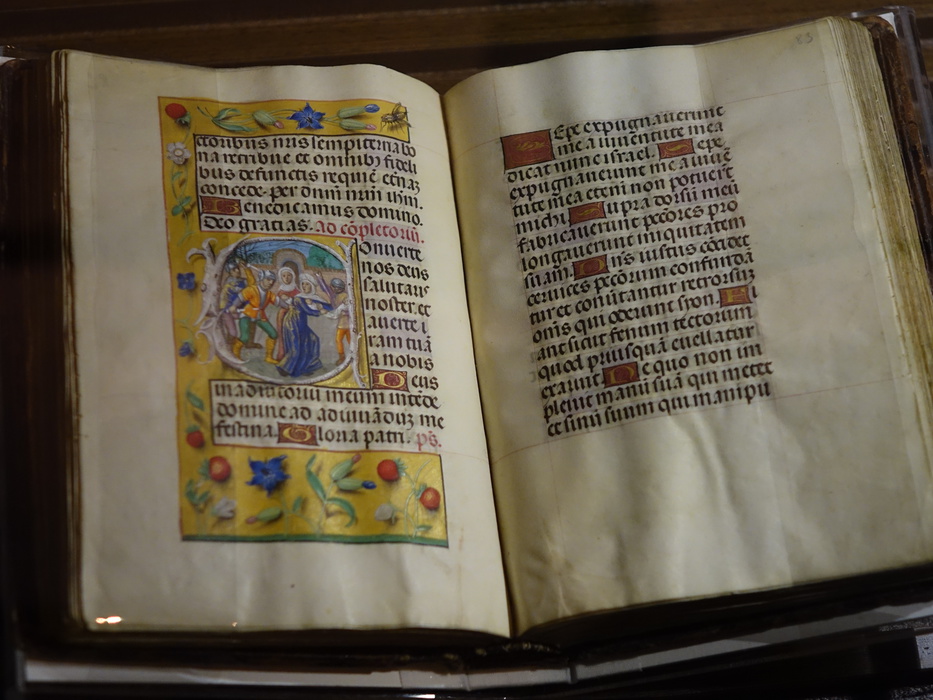 ctoribus nris sempiterna bo
na retribue et omnibꝫ fideli
bus defunctis requiē etnā
concede. per dnm nrm ihm.
Benedicamus domino.
deo gratias. ad cōpletoriū.
Onuerte
nos deus
salutaris
noster. et
auerte i
ram tuā
a nobis
Deus
in adiutoriū meum intēde
domine ad adiuuādūꝫ me
festina. Gloria patri. ps.
83
Sepe expugnauerunt
me a iuuentute mea
dicat nunc israel. Sepe
expugnauerunt me a iuuē
tute mea etenī non potuerūt
michi. Supra dorsū meū
fabricauerunt pctores pro
longauerunt iniquitatem
suam. Dns iustus cōcidet
ceruices pctorum confundā
tur et conūtantur retrorsuꝫ
oms qui oderunt syon. Fi
ant sicut fenum tectorum
quod priusquā euellatur
exaruit. De quo non im
pleuit manū suā qui metet
et sinū suum qui manipu